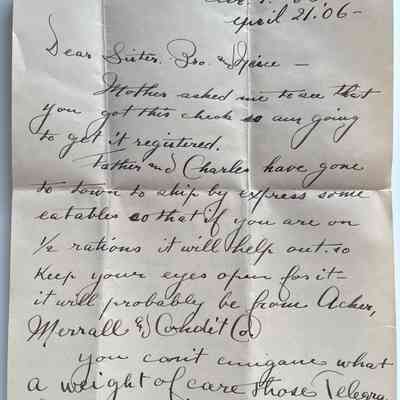 April 21 '06 -
Dear Sister. Bro. & Niece -
Mother asked me to see that
you got this check so am going
to get it registered.
Father and Charles have gone
to town to ship by express some
eatables so that if you are on
1/2 rations it will help out. so
keep your eyes open for it -
it will probably be from Acker,
Merrall & Condit Co
you can't imagine what
a weight of care those Telegra